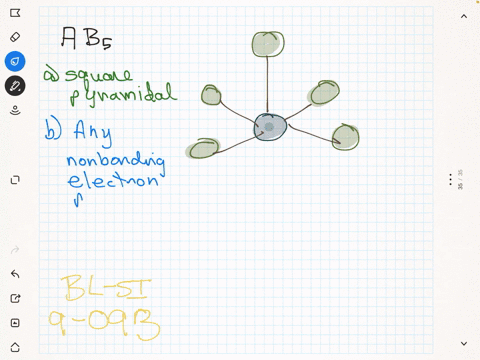 AB5
a) square
pyramidal
b) Any
nonbonding
electron
BL-SI
9-09B
35 / 35